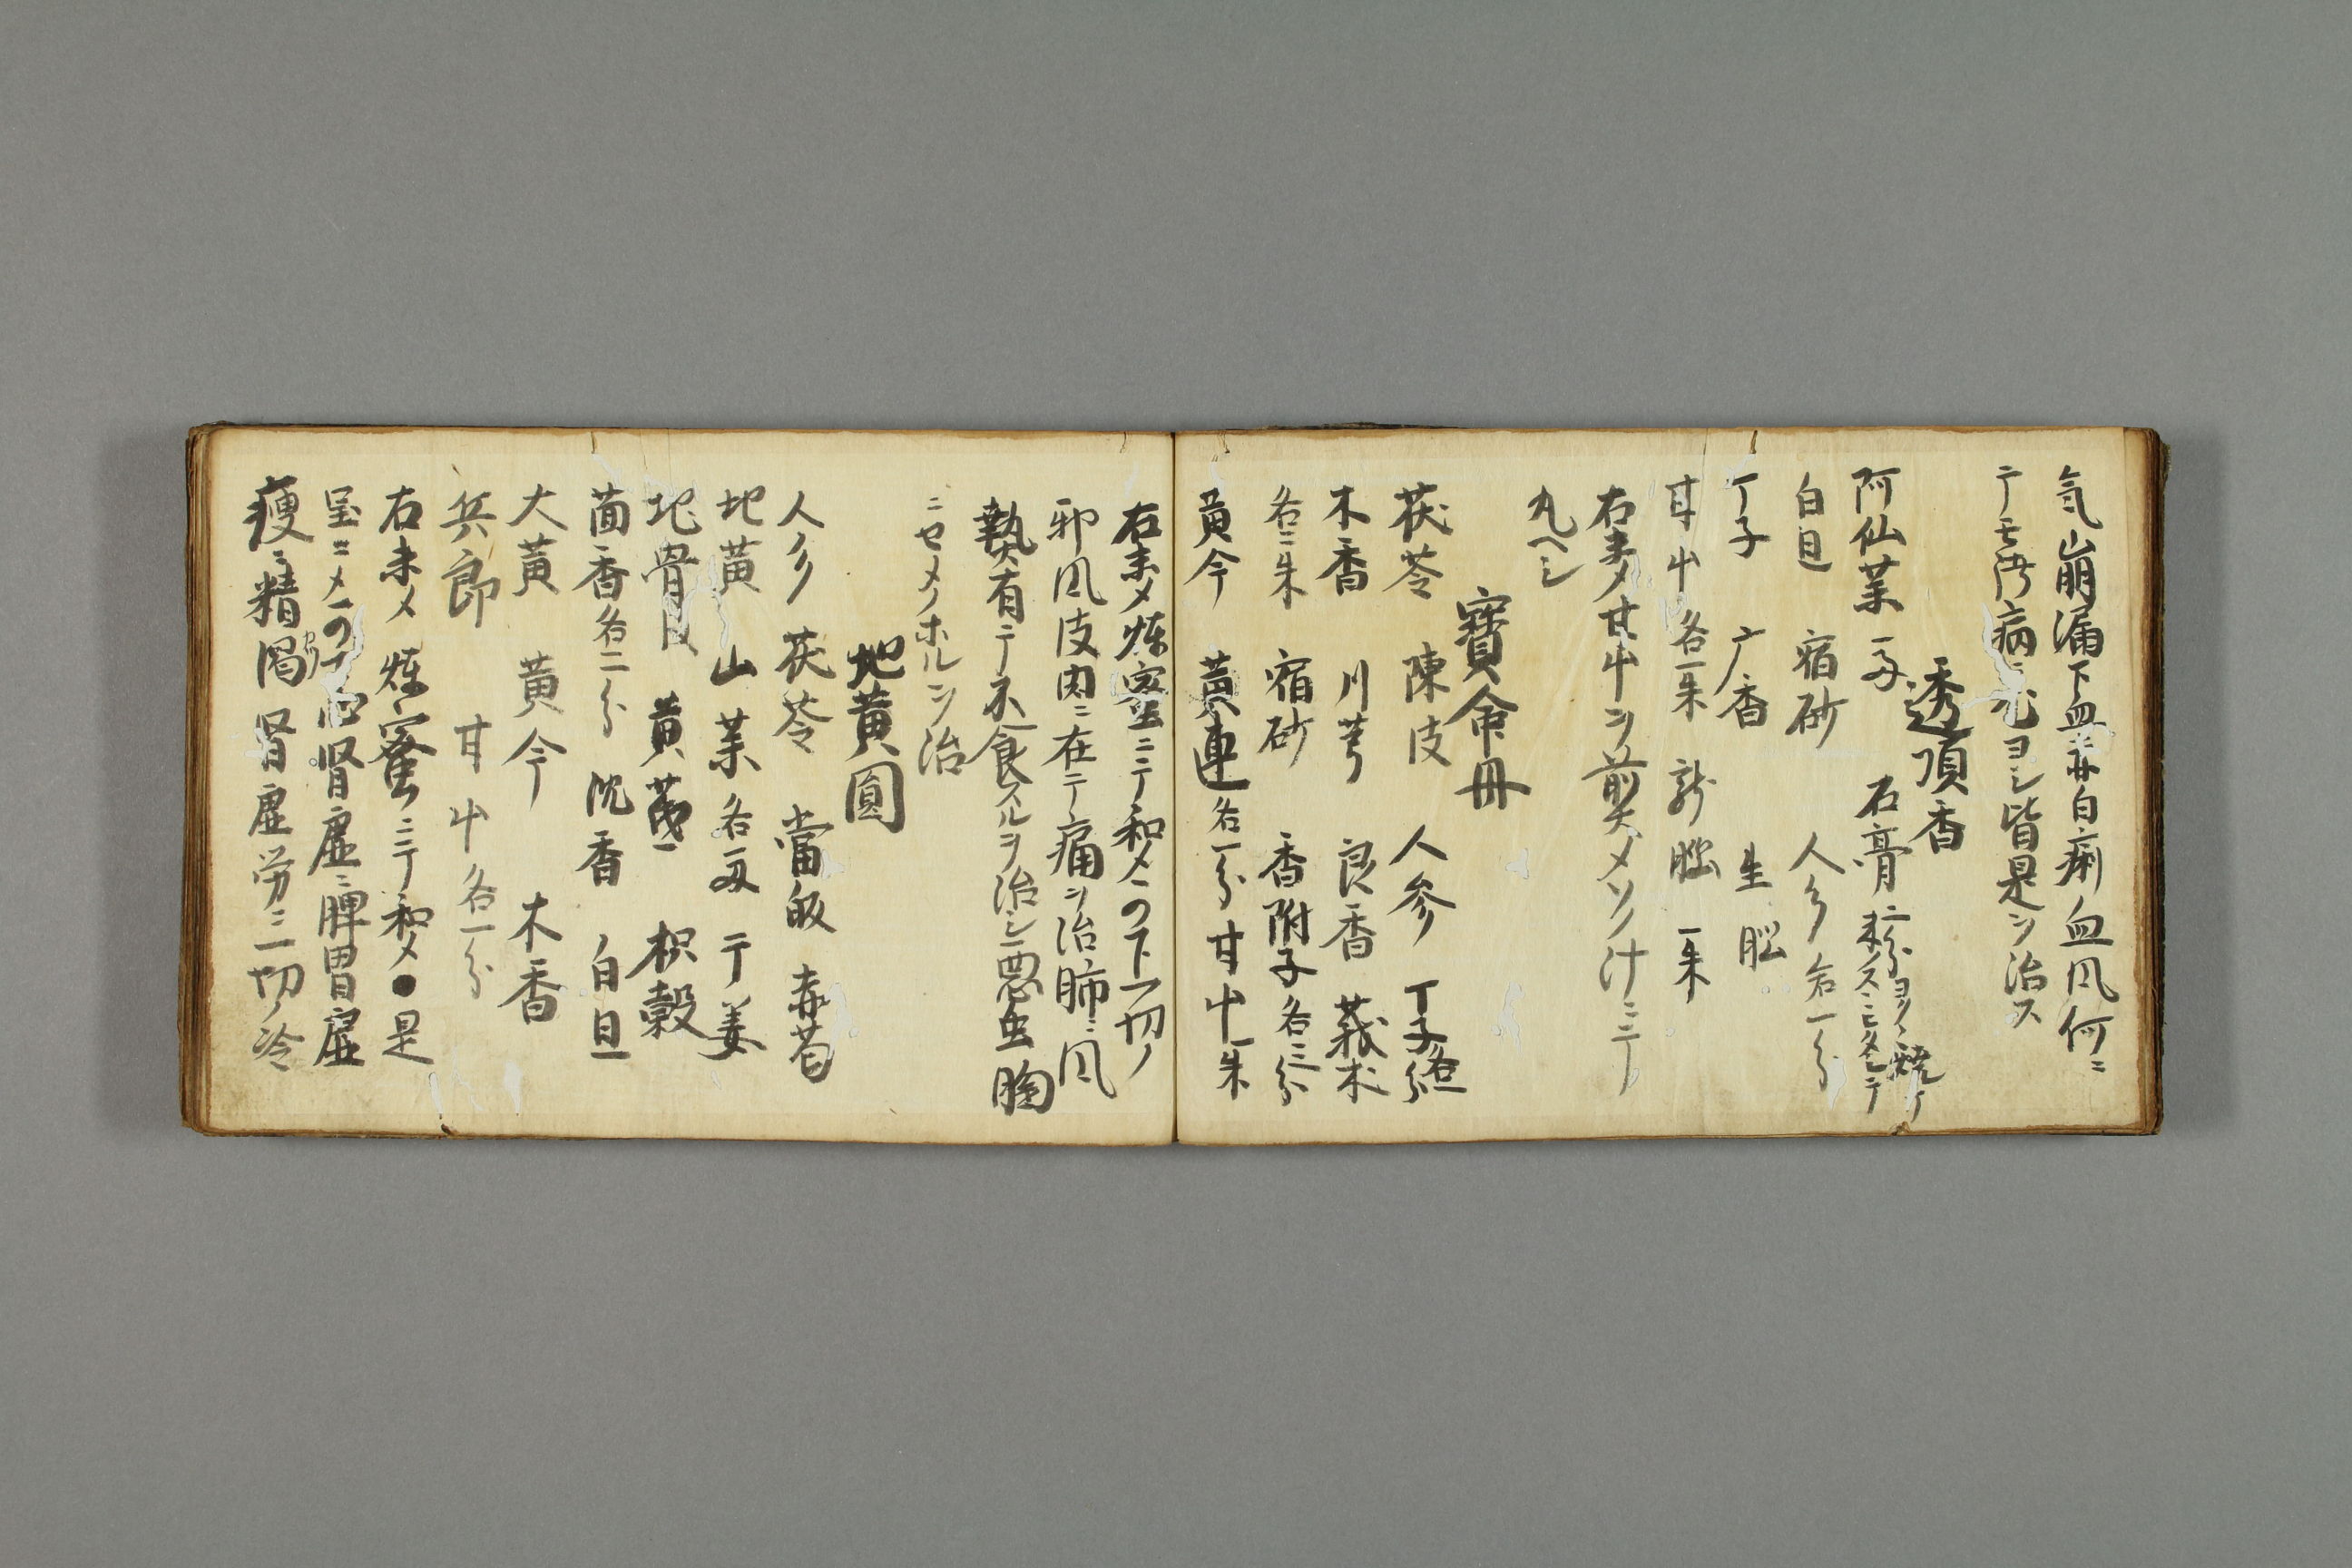 気崩漏下血 赤白痢血风何ニ
テモ 病ニ ヨシ皆是ヲ治ス
透頂香
阿仙薬 石膏二分
白旦 宿砂 人彡各一分
丁子 广香 生脳
甘屮各一朱 龍脳一朱
右末メ甘屮ヲ煎メソノ汁ニテ
丸ヘシ
寶命丹
茯苓 陳皮 人参 丁子各一分
木香 川芎 良香 莪朮
各二朱 宿砂 香附子各三分
黄今 黄連各一分 甘屮一朱
右末メ煉蜜ニテ和メ 一切ノ
邪风皮肉ニ在テ痛ヲ治肺ニ风
熱有テ不食スルヲ治シ悪虫胸
ニセメノホルヲ治
地黄圓
人彡 茯苓 當皈 赤芍
地黄 山薬 各 干姜
地骨皮 黄茋 枳穀
茴香各二分 沈香 白旦
大黄 黄今 木香
兵郎 甘屮各一分
右末メ煉蜜ニテ和メ●是
腎虚ニ脾胃虚
痩ニ精渇腎虚労ニ一切ノ冷